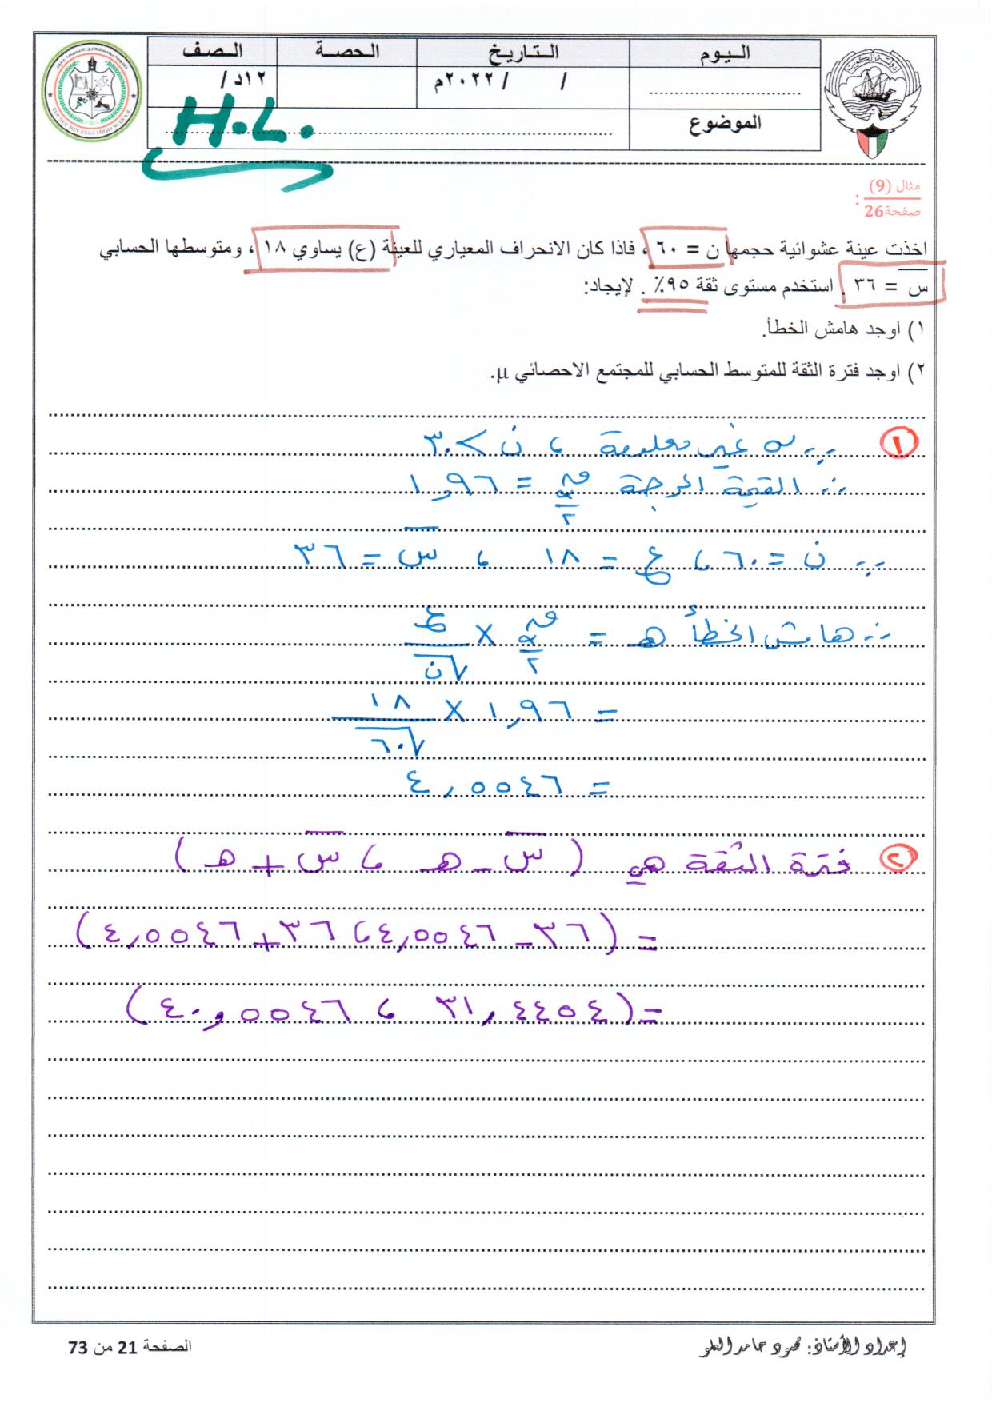 اليوم التاريخ الحصة الصف
/ / ٢٠٢٢م ١٢د/
الموضوع
H.L.
مثال (9)
صفحة26 :
اخذت عينة عشوائية حجمها ن = ٦٠ ، فاذا كان الانحراف المعياري للعينة (ع) يساوي ١٨ ، ومتوسطها الحسابي
س̅ = ٣٦ . استخدم مستوى ثقة ٩٥٪ . لإيجاد:
١) اوجد هامش الخطأ.
٢) اوجد فترة الثقة للمتوسط الحسابي للمجتمع الاحصائي µ.
١ ∵ σ غير معلومة ، ن > ٣٠
∴ القيمة الحرجة ق α/٢ = ١,٩٦
∵ ن = ٦٠ ، ع = ١٨ ، س̅ = ٣٦
∴ هامش الخطأ هـ = ق α/٢ × ع/√ن
= ١,٩٦ × ١٨/√٦٠
= ٤,٥٥٤٦
٢ فترة الثقة هي ( س̅ - هـ ، س̅ + هـ )
= (٣٦ - ٤,٥٥٤٦ ، ٣٦ + ٤,٥٥٤٦)
= (٣١,٤٤٥٤ ، ٤٠,٥٥٤٦)
إعداد الأستاذ: محمود حامد
الصفحة 21 من 73